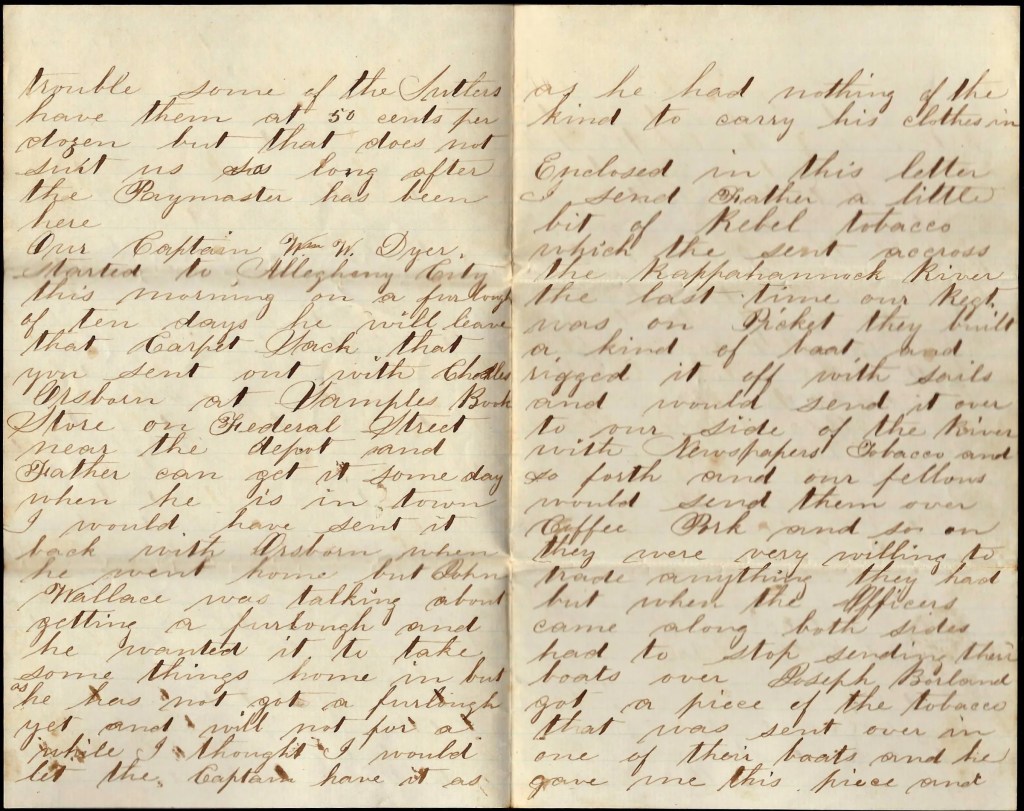 trouble some of the Sutlers
have them at 50 cents per
dozen but that does not
suit us so long after
the Paymaster has been
here
Our Captain Wm W. Dyer.
started to Alleghony City
this morning on a furlough
of ten days he will leave
that Carpet Sack that
you sent out with Charles
Orsborn at Vamples Book
Store on Federal Street
near the depot and
Father can get it some day
when he is in town
I would have sent it
back with Orsborn when
he went home but John
Wallace was talking about
getting a furlough and
he wanted it to take
some things home in but
as he has not got a furlough
yet and will not for a
while I thought I would
let the Captain have it as
as he had nothing of the
kind to carry his clothes in
Enclosed in this letter
I send Father a little
bit of Rebel tobacco
which the sent accross
the Rappahannock River
the last time our Regt.
was on Picket they built
a kind of boat and
rigged it off with sails
and would send it over
to our side of the River
with Newspapers Tobacco and
so forth and our fellows
would send them over
Coffee Pork and so on
they were very willing to
trade anything they had
but when the Officers
came along both sides
had to stop sending their
boats over Joseph Borland
got a piece of the tobacco
that was sent over in
one of their boats and he
gave me this piece and